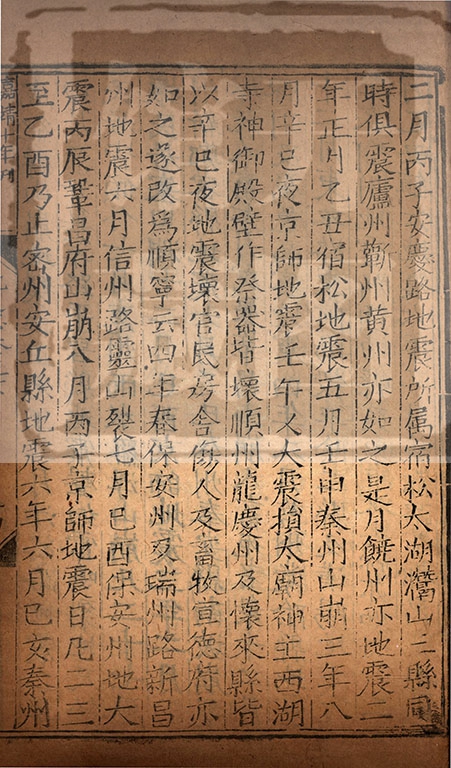 二月丙子安慶路地震所属宿松太湖灊山三縣同
時俱震廬州蘄州黄州亦如之是月饒州亦地震二
年正月乙丑宿松地震五月壬申秦州山崩三年八
月辛巳夜京師地震壬午又大震損太廟神主西湖
寺神御殿壁仆祭器皆壞順州龍慶州及懷來縣皆
以辛巳夜地震壞官民房舍傷人及畜牧宣德府亦
如之遂改爲順寧云四年春保安州及瑞州路新昌
州地震六月信州路靈山裂七月己酉保安州地大
震丙辰鞏昌府山崩八月丙子京師地震日凡二三
至乙酉乃止密州安丘縣地震六年六月己亥秦州
嘉靖十年刊